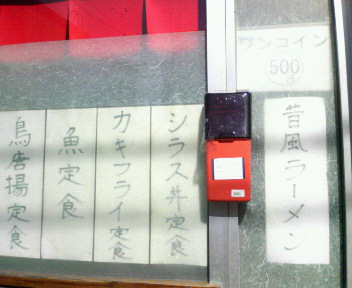 ワンコイン
500
昔風ラーメン
シラス丼定食
カキフライ定食
魚定食
鳥唐揚定食